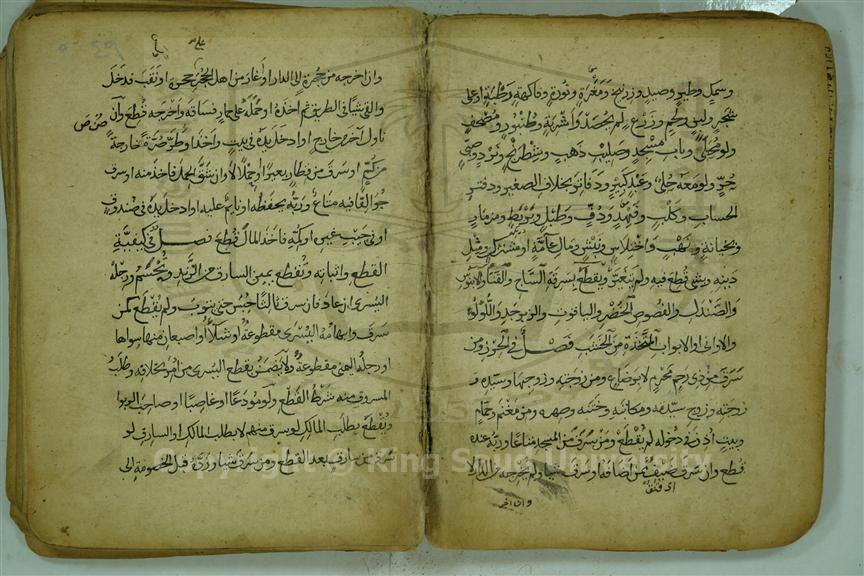 وسمك وطير وصيد وزرنيخ ومغرة ونورة وفاكهة رطبة او على
شجر ولبن ولحم وزرع لم يحصد واشربة وطنبور ومصحف
ولو محلى وباب مسجد وصليب ذهب وشطرنج ونرد وصبي
حر ولو معه حلي وعبد كبير ودفاتر بخلاف الصغير ودفتر
الحساب وكلب وفهد ودف وطبل وبربط ومزمار
وبخيانة ونهب واختلاس ونبش ومال عامة او مشترك ومثل
دينه وبشئ قطع فيه ولم يتغير ويقطع بسرقة الساج والقنا والابنوس
والصندل والفصوص الخضر والياقوت والزبرجد واللؤلؤ
والاواني والابواب المتخذة من الخشب فصل في الحرز ومن
سرق من ذي رحم محرم لا برضاع ومن زوجته وزوجها وسيده و
زوجته وزوج سيدته ومكاتبه وختنه وصهره ومن مغنم وحمام
وبيت اذن في دخوله لم يقطع ومن سرق من المسجد متاعا وربه عنده
قطع وان سرق ضيف ممن اضافه او سرق شيئا ولم يخرجه من الدار لا
وان اخر
وان اخرجه من حجرة الى الدار او اغار من اهل الحجر حجرة او نقب فدخل
والقى شيئا في الطريق ثم اخذه او حمله على حمار فساقه واخرجه قطع وان
ناول آخر من خارج او ادخل يده في بيت واخذ او طر صرة خارجة
من كم او سرق من قطار بعيرا او حملا لا وان شق الحمل فاخذ منه او سرق
جوالقا فيه متاع وربه يحفظه او نايم عليه او ادخل يده في صندوق
او في جيب غيره او كمه فاخذ المال قطع فصل في كيفية
القطع واثباته وتقطع يمين السارق من الزند وتحسم ورجله
اليسرى ان عاد فان سرق ثالثا حبس حتى يتوب ولم يقطع كمن
سرق وابهامه اليسرى مقطوعة او شلاء او اصبعان منها سواها
او رجله اليمنى مقطوعة ولا يضمن بقطع اليسرى من امر بخلافه وطلب
المسروق منه شرط القطع ولو مودعا او غاصبا او صاحب الربوا
ويقطع بطلب المالك لو سرق منهم لا بطلب المالك او السارق لو
سرق من سارق بعد القطع ومن سرق شيئا ورده قبل الخصومة الى
Copyright © King Saud University